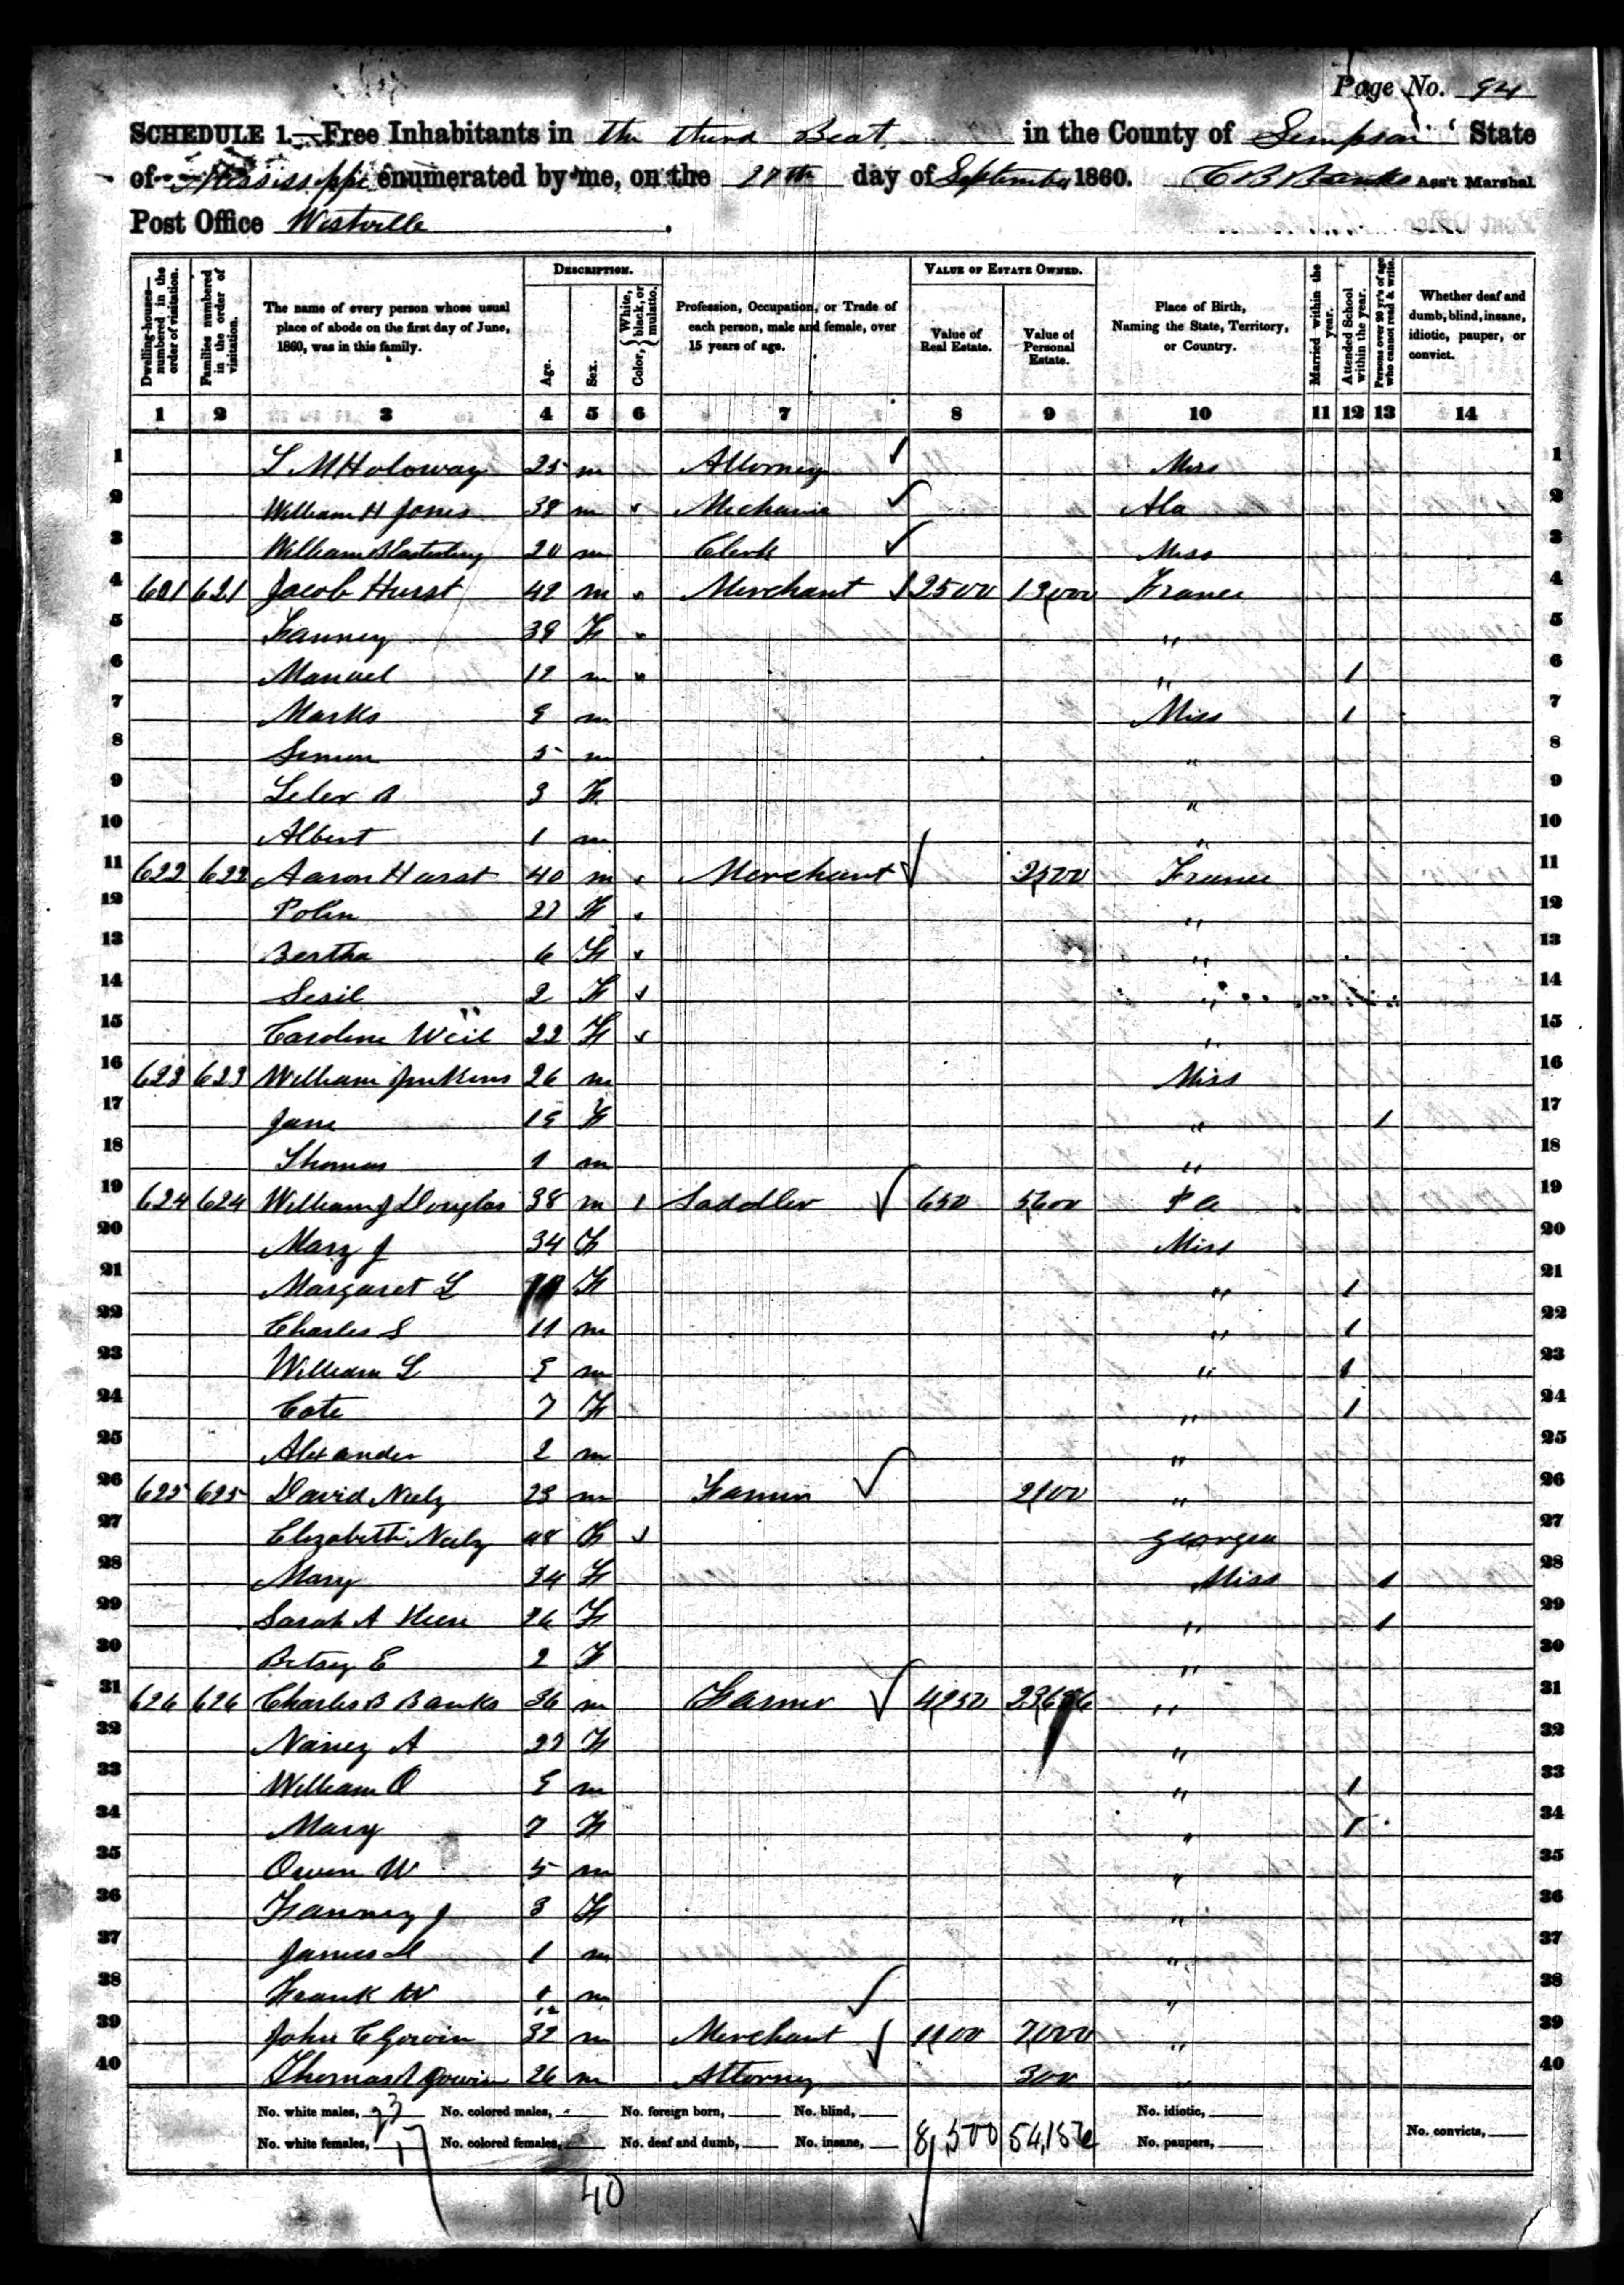 Page No. 94
SCHEDULE 1.—Free Inhabitants in the third Beat in the County of Simpson State
of Mississippi enumerated by me, on the 27th day of September 1860. C B Banks Ass't Marshal
Post Office Westville
Dwelling-houses—numbered in the order of visitation. Families numbered in the order of visitation. The name of every person whose usual place of abode on the first day of June, 1860, was in this family. DESCRIPTION. Age. Sex. Color, {White, black, or mulatto. Profession, Occupation, or Trade of each person, male and female, over 15 years of age. VALUE OF ESTATE OWNED. Value of Real Estate. Value of Personal Estate. Place of Birth, Naming the State, Territory, or Country. Married within the year. Attended School within the year. Persons over 20 yr's of age who cannot read & write. Whether deaf and dumb, blind, insane, idiotic, pauper, or convict.
1 2 3 4 5 6 7 8 9 10 11 12 13 14
1 L M Holoway 25 m Attorney ✓ Miss 1
2 William H Jones 38 m Mechanic ✓ Ala 2
3 William B 20 m Clerk ✓ Miss 3
4 621 621 Jacob Hurst 42 m Merchant 2500 13,000 France 4
5 Fanney 39 F " 5
6 Manuel 12 m " 1 6
7 Marks 9 m Miss 1 7
8 Simon 5 m " 8
9 3 F " 9
10 Albert 1 m " 10
11 622 622 Aaron Hurst 40 m Merchant ✓ 2,500 France 11
12 Polin 27 F " 12
13 Bertha 6 F " 13
14 Sesil 2 F " 14
15 Caroline Weil 22 F " 15
16 623 623 William Jenkins 26 m Miss 16
17 Jane 19 F " 1 17
18 Thomas 1 m " 18
19 624 624 William J Douglas 38 m 1 Saddler ✓ 650 5,600 Pa 19
20 Mary J 34 F Miss 20
21 Margaret L F " 1 21
22 Charles S 11 m " 1 22
23 William L 9 m " 1 23
24 Cate 7 F " 1 24
25 Alexander 2 m " 25
26 625 625 David Neely 23 m Farmer ✓ 2,100 " 26
27 Elizabeth Neely 48 F Georgia 27
28 Mary 24 F Miss 1 28
29 Sarah A 26 F " 1 29
30 Betsey E 2 F " 30
31 626 626 Charles B Banks 36 m Farmer ✓ 4,250 23,656 " 31
32 Nancy A 27 F " 32
33 William O 9 m " 1 33
34 Mary 7 F " 1 34
35 Owen W 5 m " 35
36 Fanney J 3 F " 36
37 James M 1 m " 37
38 Frank W 1/12 m ✓ " 38
39 John C Gowin 32 m Merchant ✓ 1,100 7,000 " 39
40 Thomas R Gowin 26 m Attorney 300 " 40
No. white males, 23 No. colored males, No. foreign born, No. blind, No. idiotic,
No. white females, 17 No. colored females, No. deaf and dumb, No. insane, 8,500 54,156 No. paupers, No. convicts,
40